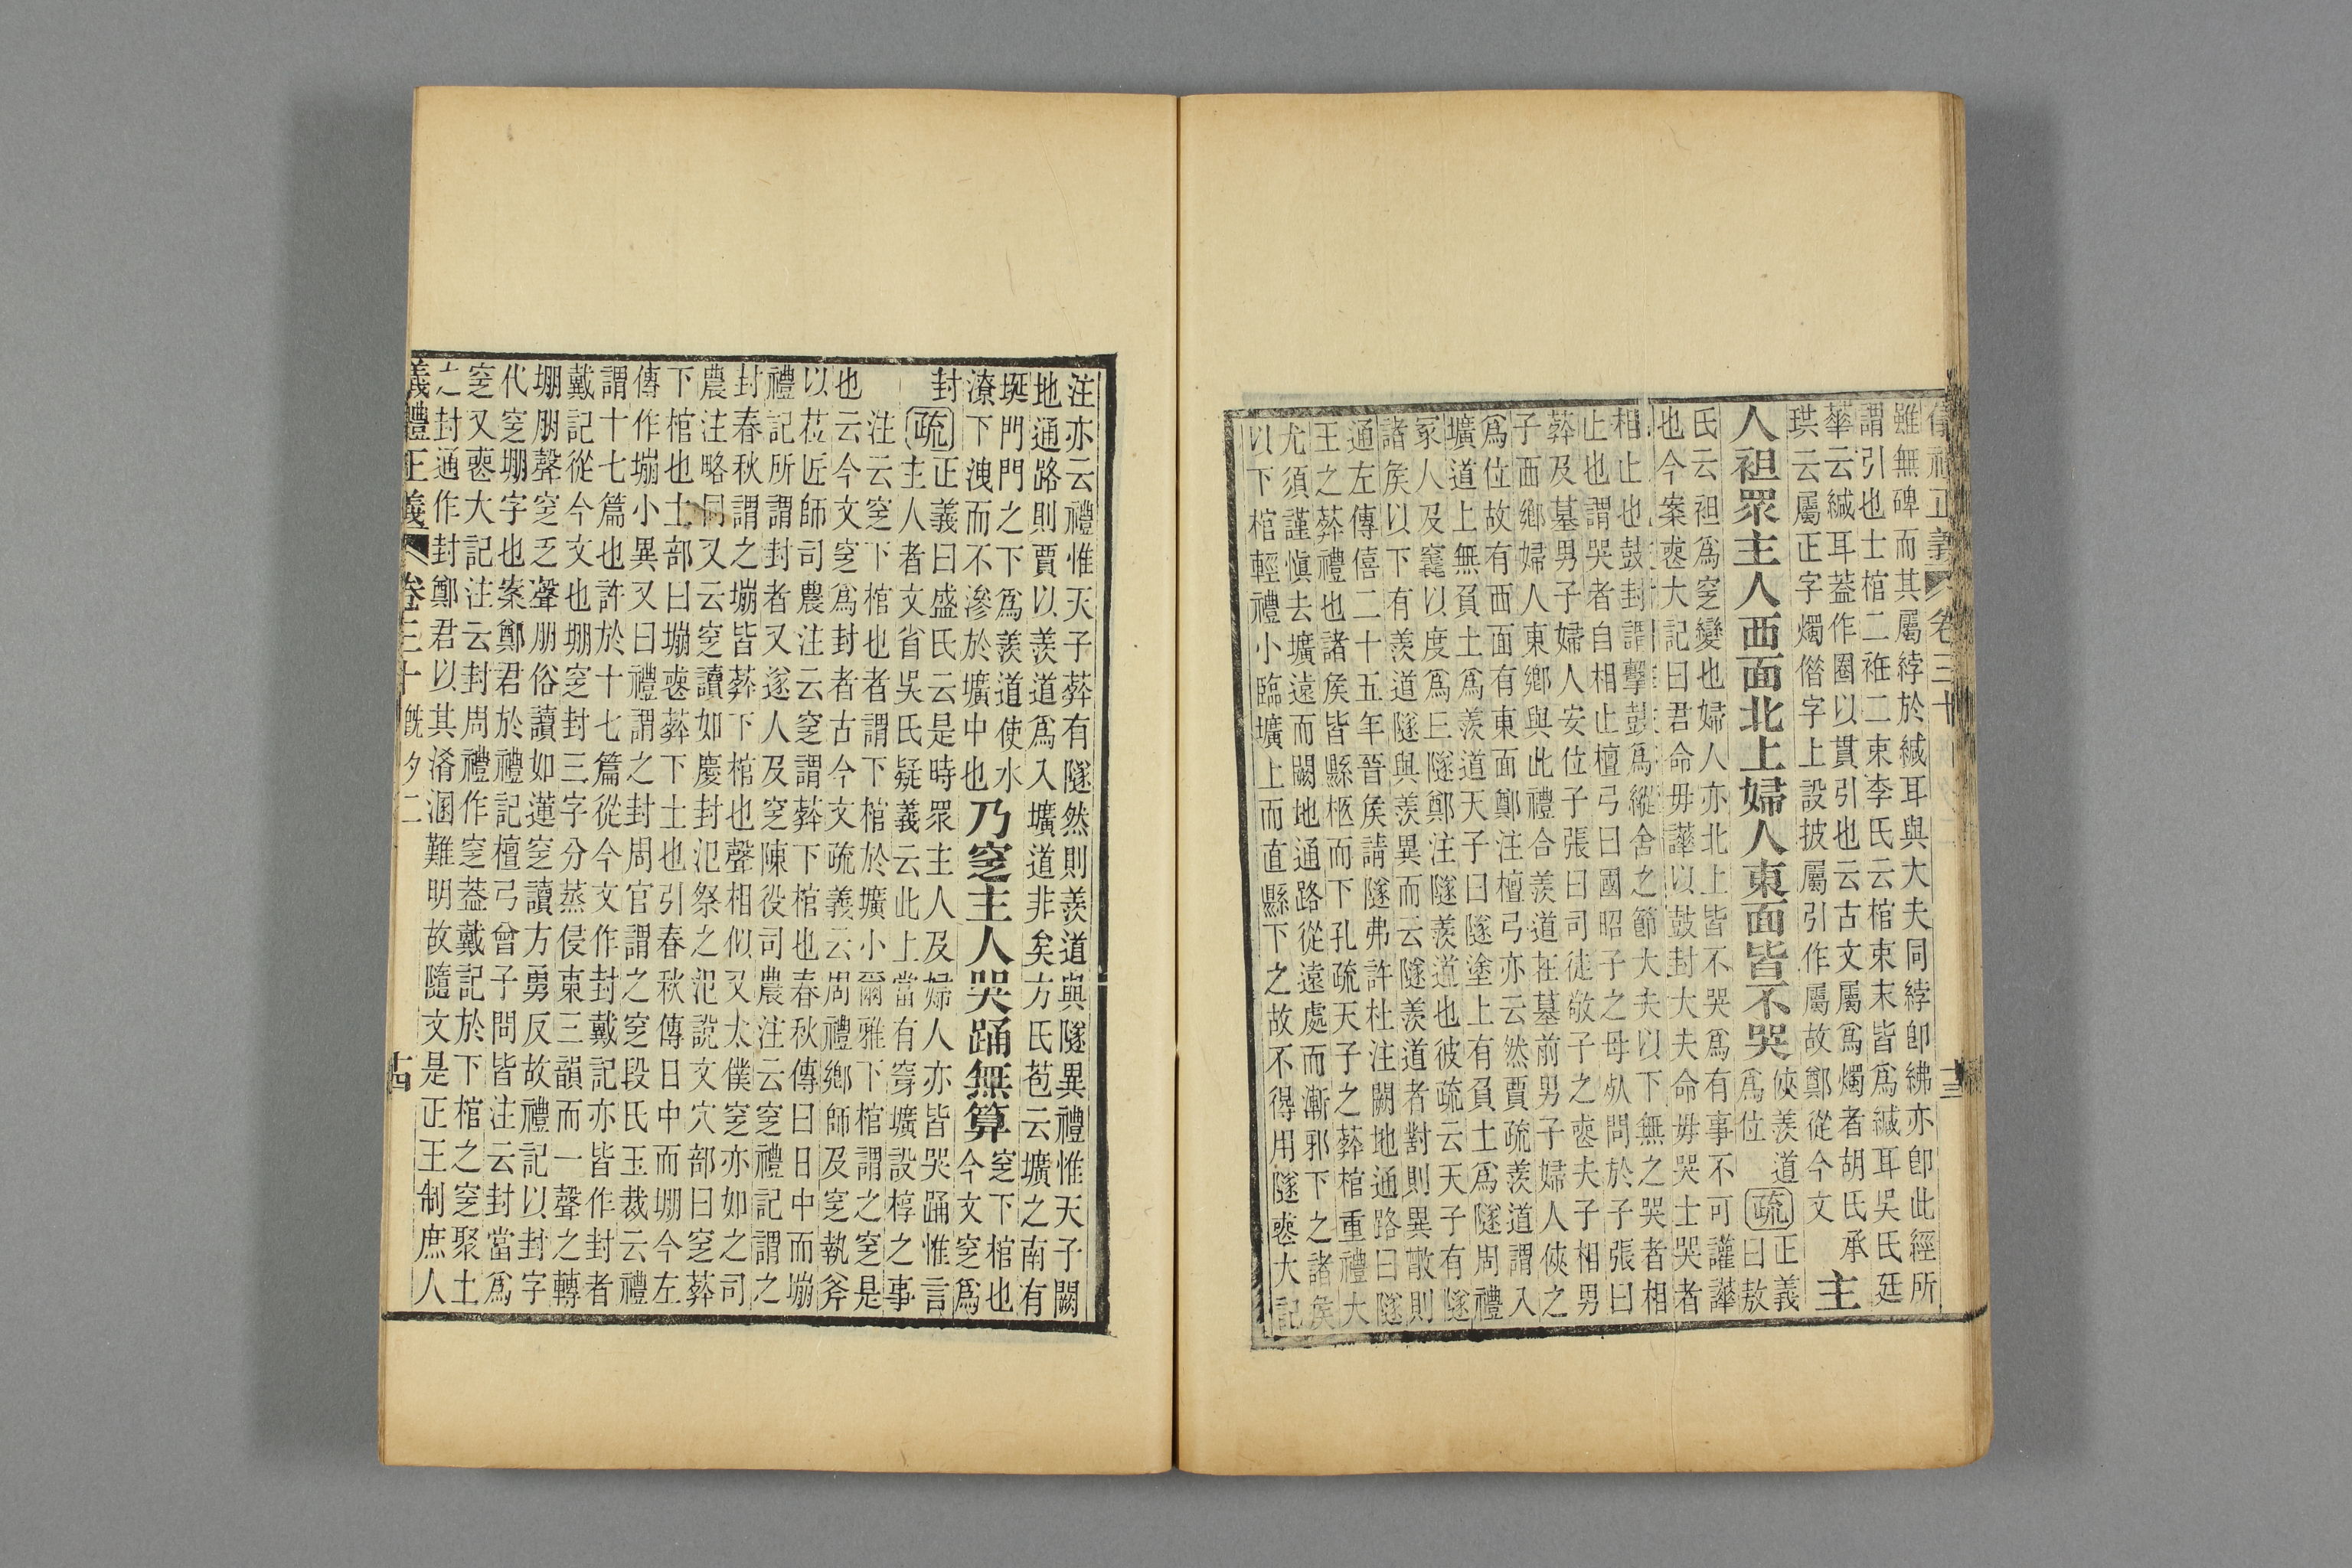 儀禮正義 卷三十
雖無碑而其屬綍於緘耳與大夫同綍卽紼亦卽此經所
謂引也士棺二衽二束李氏云棺束末皆爲緘耳吳氏廷
華云緘耳蓋作圈以貫引也云古文屬爲燭者胡氏承
珙云屬正字燭僭字上設披屬引作屬故鄭從今文
主
人袒眾主人西面北上婦人東面皆不哭
俠羨道
爲位
疏
正義
曰敖
氏云袒爲窆變也婦人亦北上皆不哭爲有事不可讙譁
也今案喪大記曰君命毋譁以鼓封大夫命毋哭士哭者
相止也鼓封謂擊鼓爲縱舍之節大夫以下無之哭者相
止也謂哭者自相止檀弓曰國昭子之母死問於子張曰
葬及墓男子婦人安位子張曰司徒敬子之喪夫子相男
子西鄉婦人東鄉與此禮合羨道在墓前男子婦人俠之
爲位故有西面有東面鄭注檀弓亦云然賈疏羨道謂入
壙道上無負土爲羨道天子曰隧塗上有負土爲隧周禮
冢人及竁以度爲丘隧鄭注隧羨道也彼疏云天子有隧
諸矦以下有羨道隧與羨異而云隧羨道者對則異散則
通左傳僖二十五年晉矦請隧弗許杜注闕地通路曰隧
王之葬禮也諸矦皆縣柩而下孔疏天子之葬棺重禮大
尤須謹愼去壙遠而闕地通路從遠處而漸邪下之諸矦
以下棺輕禮小臨壙上而直縣下之故不得用隧喪大記
十三
注亦云禮惟天子葬有隧然則羨道與隧異禮惟天子闕
地通路則賈以羨道爲入壙道非矣方氏苞云壙之南有
埏門門之下爲羨道使水
潦下洩而不滲於壙中也
乃窆主人哭踊無算
窆下棺也
今文窆爲
封
疏
正義曰盛氏云是時眾主人及婦人亦皆哭踊惟言
主人者文省吳氏疑義云此上當有穿壙設椁之事
注云窆下棺也者謂下棺於壙小爾雅下棺謂之窆是
也云今文窆爲封者古今文疏義云周禮鄉師及窆執斧
以莅匠師司農注云窆謂葬下棺也春秋傳曰日中而塴
禮記所謂封者又遂人及窆陳役司農注云窆禮記謂之
封春秋謂之塴皆葬下棺也聲相似又太僕窆亦如之司
農注略同又云窆讀如慶封氾祭之氾說文穴部曰窆葬
下棺也土部曰塴喪葬下土也引春秋傳曰日中而堋今左
傳作塴小異又曰禮謂之封周官謂之窆段氏玉裁云禮
謂十七篇也許於十七篇從今文作封戴記亦皆作封者
戴記從今文也堋窆封三字分蒸侵東三韻而一聲之轉
堋朋聲窆乏聲朋俗讀如蓮窆讀方勇反故禮記以封字
代窆堋字也案鄭君於禮記檀弓曾子問皆注云封當爲
窆又喪大記注云封周禮作窆蓋戴記於下棺之窆聚土
之封通作封鄭君以其淆溷難明故隨文是正王制庶人
儀禮正義 卷三十 旣夕二
十四